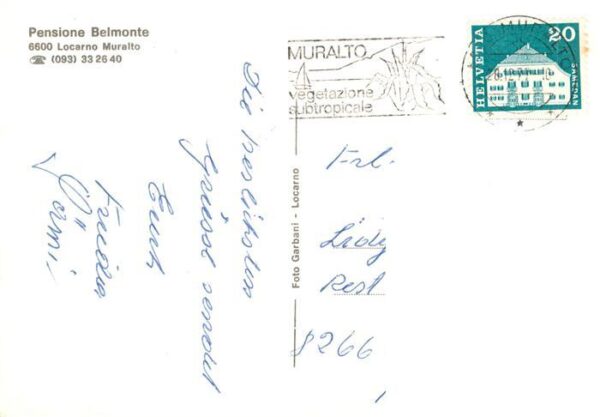 Pensione Belmonte
6600 Locarno Muralto
☎ (093) 33 26 40
MURALTO
vegetazione
subtropicale
MURALTO
HELVETIA
20
Die herzlichsten
Grüsse sendet
Euch
Frieda
Foto Garbani - Locarno
Frl.
Lidy
Rest
8266